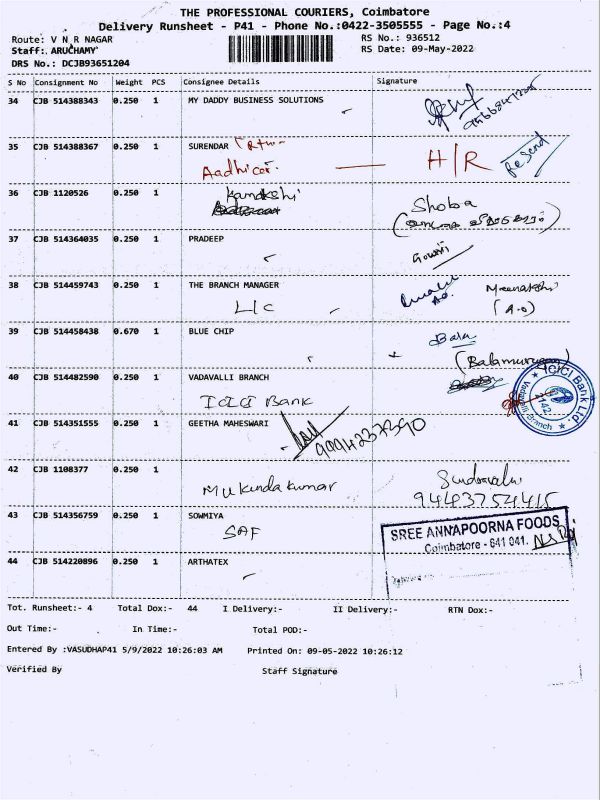 THE PROFESSIONAL COURIERS, Coimbatore
Delivery Runsheet - P41 - Phone No.:0422-3505555 - Page No.:4
Route: V N R NAGAR RS No.: 936512
Staff: ARUCHAMY RS Date: 09-May-2022
DRS No.: DCJB93651204
S No Consignment No Weight PCS Consignee Details Signature
34 CJB 514388343 0.250 1 MY DADDY BUSINESS SOLUTIONS
35 CJB 514388367 0.250 1 SURENDAR
Aadhicor H/R Resend
36 CJB 1120526 0.250 1 Kamakshi Shoba
37 CJB 514364035 0.250 1 PRADEEP Gowri
38 CJB 514459743 0.250 1 THE BRANCH MANAGER
LIC Meenakshi
(A.O)
39 CJB 514458438 0.670 1 BLUE CHIP Bala
(Balamurugan)
40 CJB 514482590 0.250 1 VADAVALLI BRANCH
ICICI Bank
ICICI Bank Ltd.
Vadavalli-Branch
41 CJB 514351555 0.250 1 GEETHA MAHESWARI
9994237390
42 CJB 1108377 0.250 1
Mukundakumar
9443754415
43 CJB 514356759 0.250 1 SOWMIYA
SAF
SREE ANNAPOORNA FOODS
Coimbatore - 641 041.
44 CJB 514220896 0.250 1 ARTHATEX
Tot. Runsheet:- 4 Total Dox:- 44 I Delivery:- II Delivery:- RTN Dox:-
Out Time:- In Time:- Total POD:-
Entered By :VASUDHAP41 5/9/2022 10:26:03 AM Printed On: 09-05-2022 10:26:12
Verified By Staff Signature